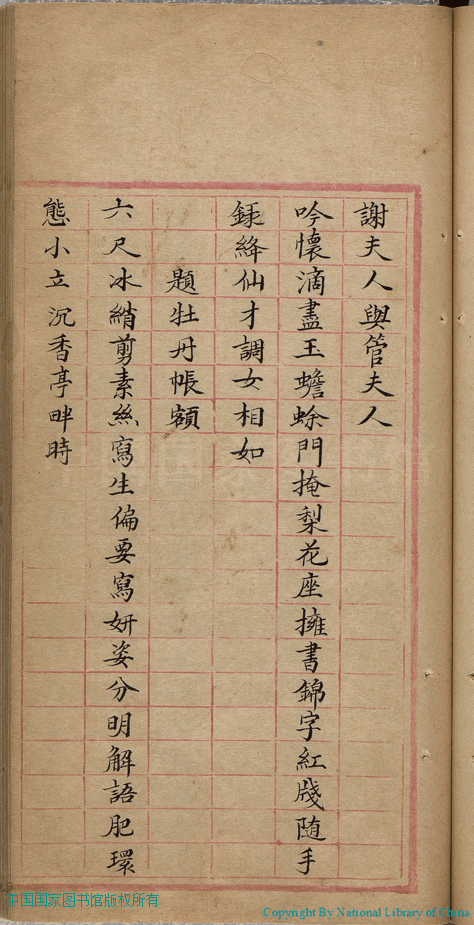 謝夫人與管夫人
吟懷滴盡玉蟾蜍門掩梨花座擁書錦字紅牋随手
錄絳仙才調女相如
題牡丹帳額
六尺冰綃剪素絲寫生偏要寫妍姿分明解語肥環
態小立沉香亭畔時
中国国家图书馆版权所有
Copyright By National Library of China